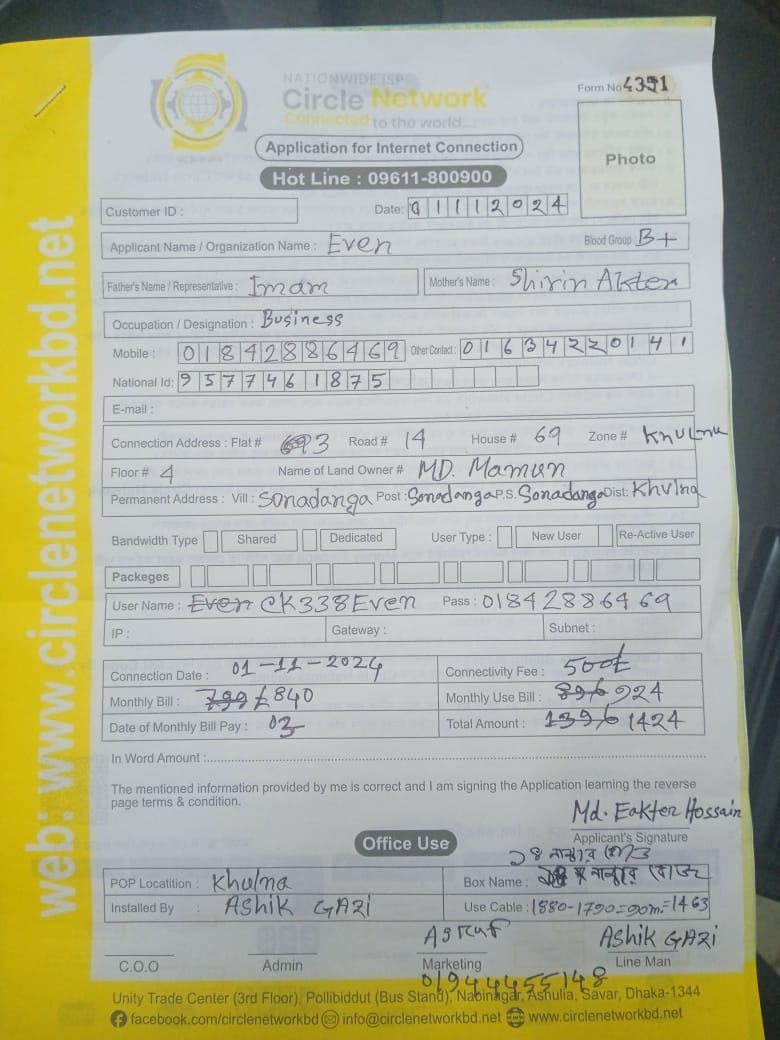 NATIONWIDE ISP
Circle Network
Connected to the world...
Form No 4351
Photo
Application for Internet Connection
Hot Line : 09611-800900
Customer ID :
Date: 01112024
Applicant Name / Organization Name : Even Blood Group : B+
Father's Name / Representative : Imam Mother's Name : Shirin Akter
Occupation / Designation : Business
Mobile : 01842886469 Other Contact : 01634220141
National Id: 9577461875
E-mail :
Connection Address : Flat # 3 Road # 14 House # 69 Zone # Khulna
Floor # 4 Name of Land Owner # MD. Mamun
Permanent Address : Vill : Sonadanga Post : Sonadanga P.S. Sonadanga Dist: Khulna
Bandwidth Type Shared Dedicated User Type : New User Re-Active User
Packeges
User Name : Even CK338Even Pass : 01842886469
IP : Gateway : Subnet :
Connection Date : 01-11-2024 Connectivity Fee : 500t
Monthly Bill : 799 840 Monthly Use Bill : 896 924
Date of Monthly Bill Pay : 03 Total Amount : 1396 1424
In Word Amount :
The mentioned information provided by me is correct and I am signing the Application learning the reverse
page terms & condition.
Md. Eakter Hossain
Applicant's Signature
Office Use
২৪ নাম্বার
POP Locatition : Khulna Box Name : নাম্বার
Installed By : Ashik GAZi Use Cable : 1880-1790=90m=1463
Asraf Ashik GAZi
C.O.O Admin Marketing Line Man
01944455148
Unity Trade Center (3rd Floor), Pollibiddut (Bus Stand), Nabinagar, Ashulia, Savar, Dhaka-1344
facebook.com/circlenetworkbd info@circlenetworkbd.net www.circlenetworkbd.net
web: www.circlenetworkbd.net